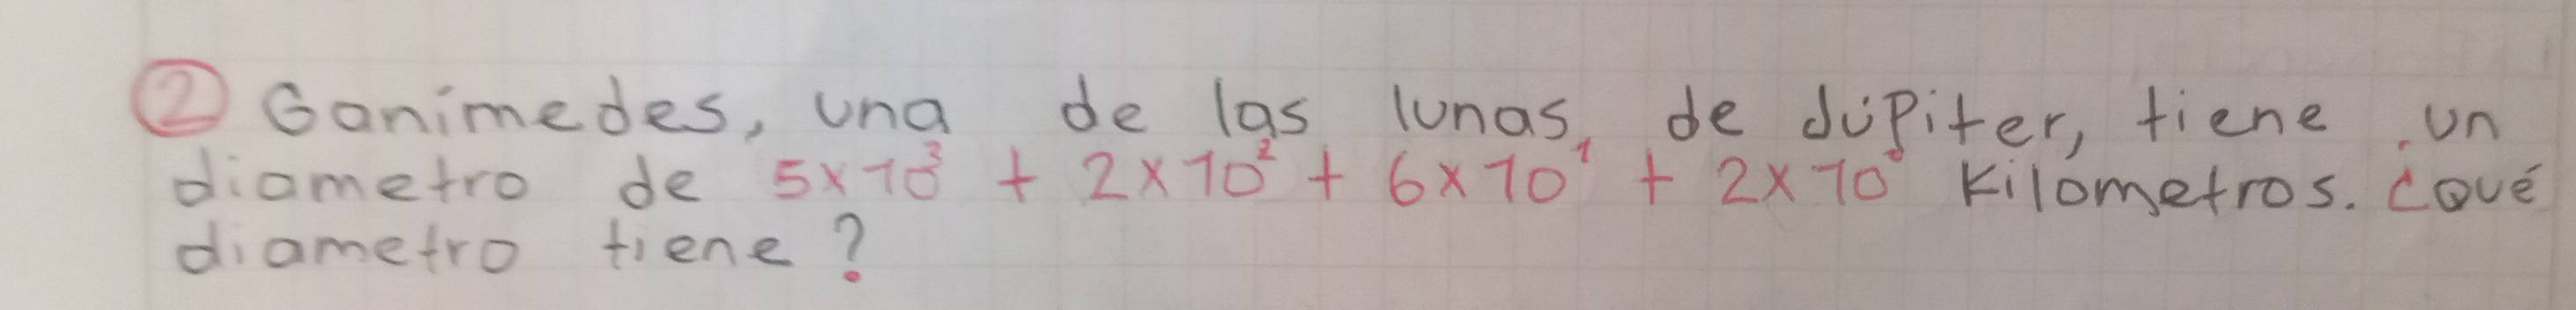 ② Ganímedes, una de las lunas, de Júpiter, tiene un
diametro de 5x10³ + 2x10² + 6x10¹ + 2x10⁰ Kilometros. ¿Qué
diametro tiene?